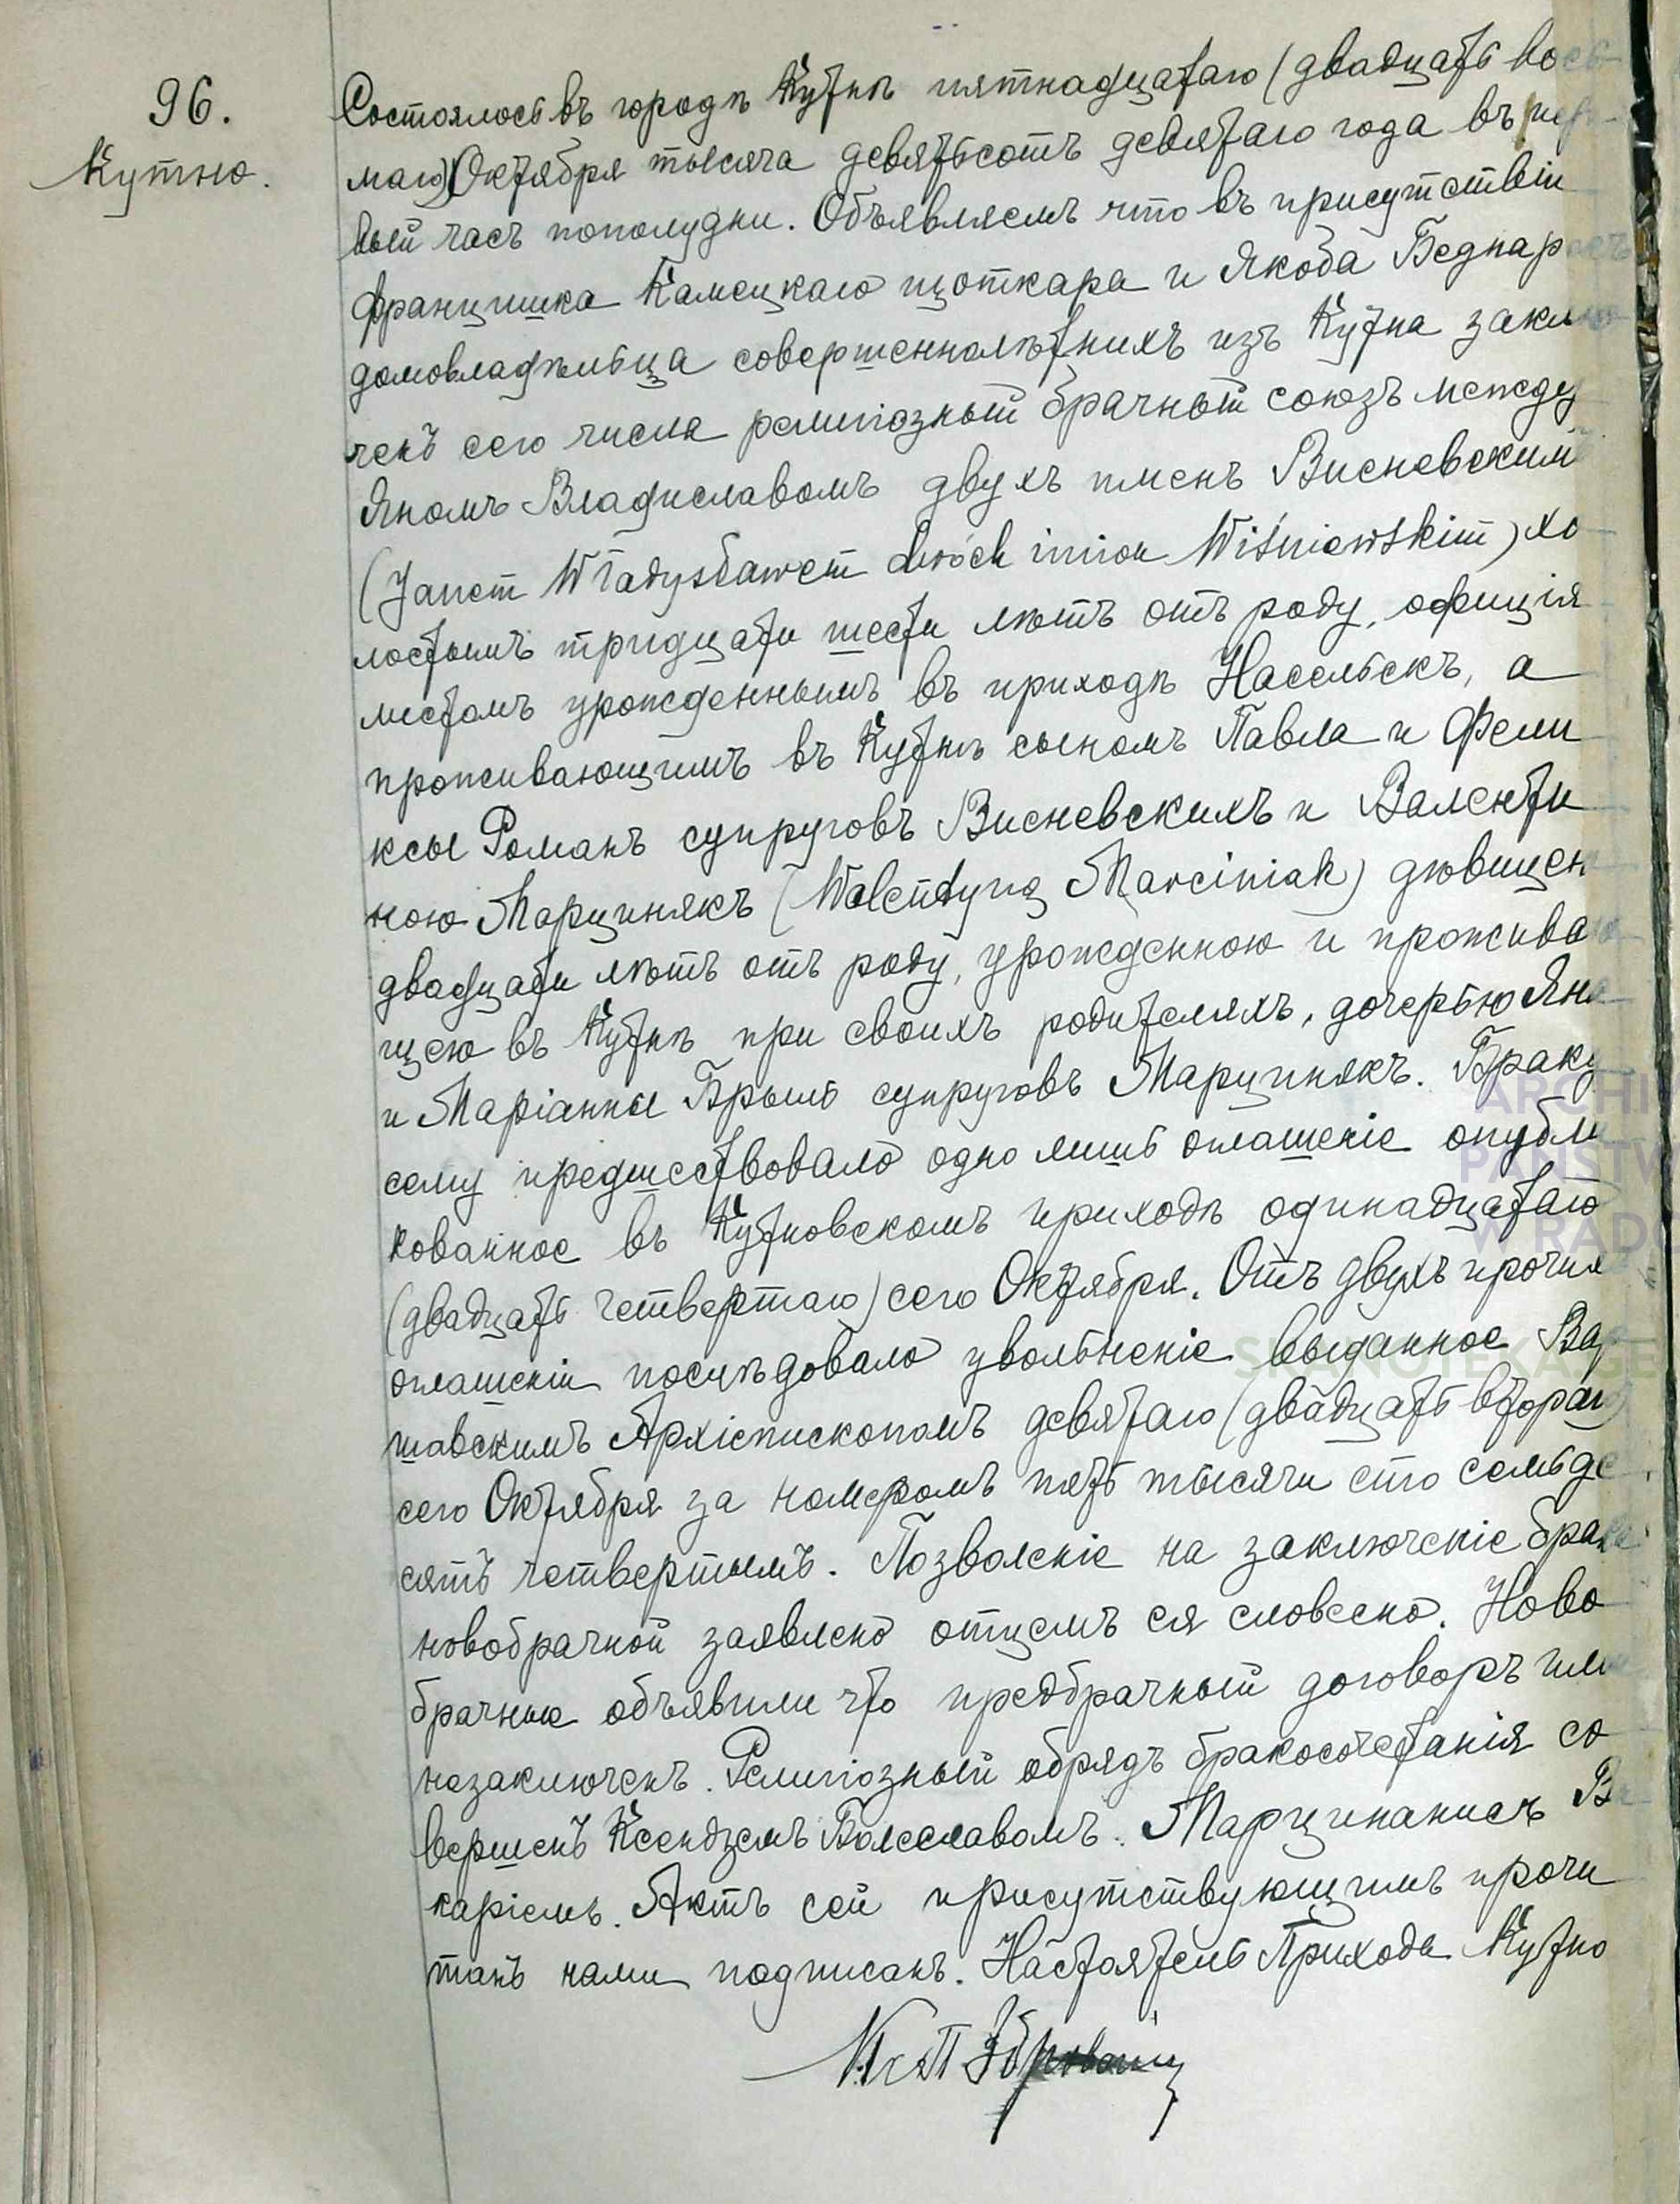 96.
Кутно.
Состоялось въ городѣ Кутнѣ пятнадцатаго (двадцать вось
маго) Октября тысяча девятьсотъ девятаго года въ пер
вый часъ пополудни. Объявляемъ что въ присутствіи
Францишка Камецкаго щоткара и Якоба Беднар
домовладѣльца совершеннолѣтнихъ изъ Кутна заклю
ченъ сего числа религіозный брачный союзъ между
Яномъ Владиславомъ двухъ именъ Висневскимъ
(Janem Władysławem dwóch imion Wiśniewskim) хо
лостымъ тридцати шести лѣтъ отъ роду, офиція
листомъ урожденнымъ въ приходѣ Насельскъ, а
проживающимъ въ Кутнѣ сыномъ Павла и Фели
ксы Романъ супруговъ Висневскихъ и Валенти
ною Марцинякъ (Walentyną Marciniak) дѣвицею
двадцати лѣтъ отъ роду, урожденною и прожива
щею въ Кутнѣ при своихъ родителяхъ, дочерью Яна
и Маріанны Брыль супруговъ Марцинякъ. Браку
сему предшествовало одно лишь оглашеніе опубли
кованное въ Кутновскомъ приходѣ одинадцатаго
(двадцать четвертаго) сего Октября. Отъ двухъ прочих
оглашеніи послѣдовало увольненіе выданное Вар
шавскимъ Архіепископомъ девятаго (двадцать втораго)
сего Октября за номеромъ пять тысячи сто семьде
сятъ четвертымъ. Позволеніе на заключеніе брака
новобрачной заявлено отцемъ ея словесно. Ново
брачные объявили что предбрачный договоръ ими
незаключенъ. Религіозный обрядъ бракосочетанія со
вершенъ Ксендземъ Болеславомъ. Марцинанисъ Ви
каріемъ. Актъ сей присутствующимъ прочи
танъ нами подписанъ. Настоятель Прихода Кутно
ARCHI
PAŃSTW
W RADO